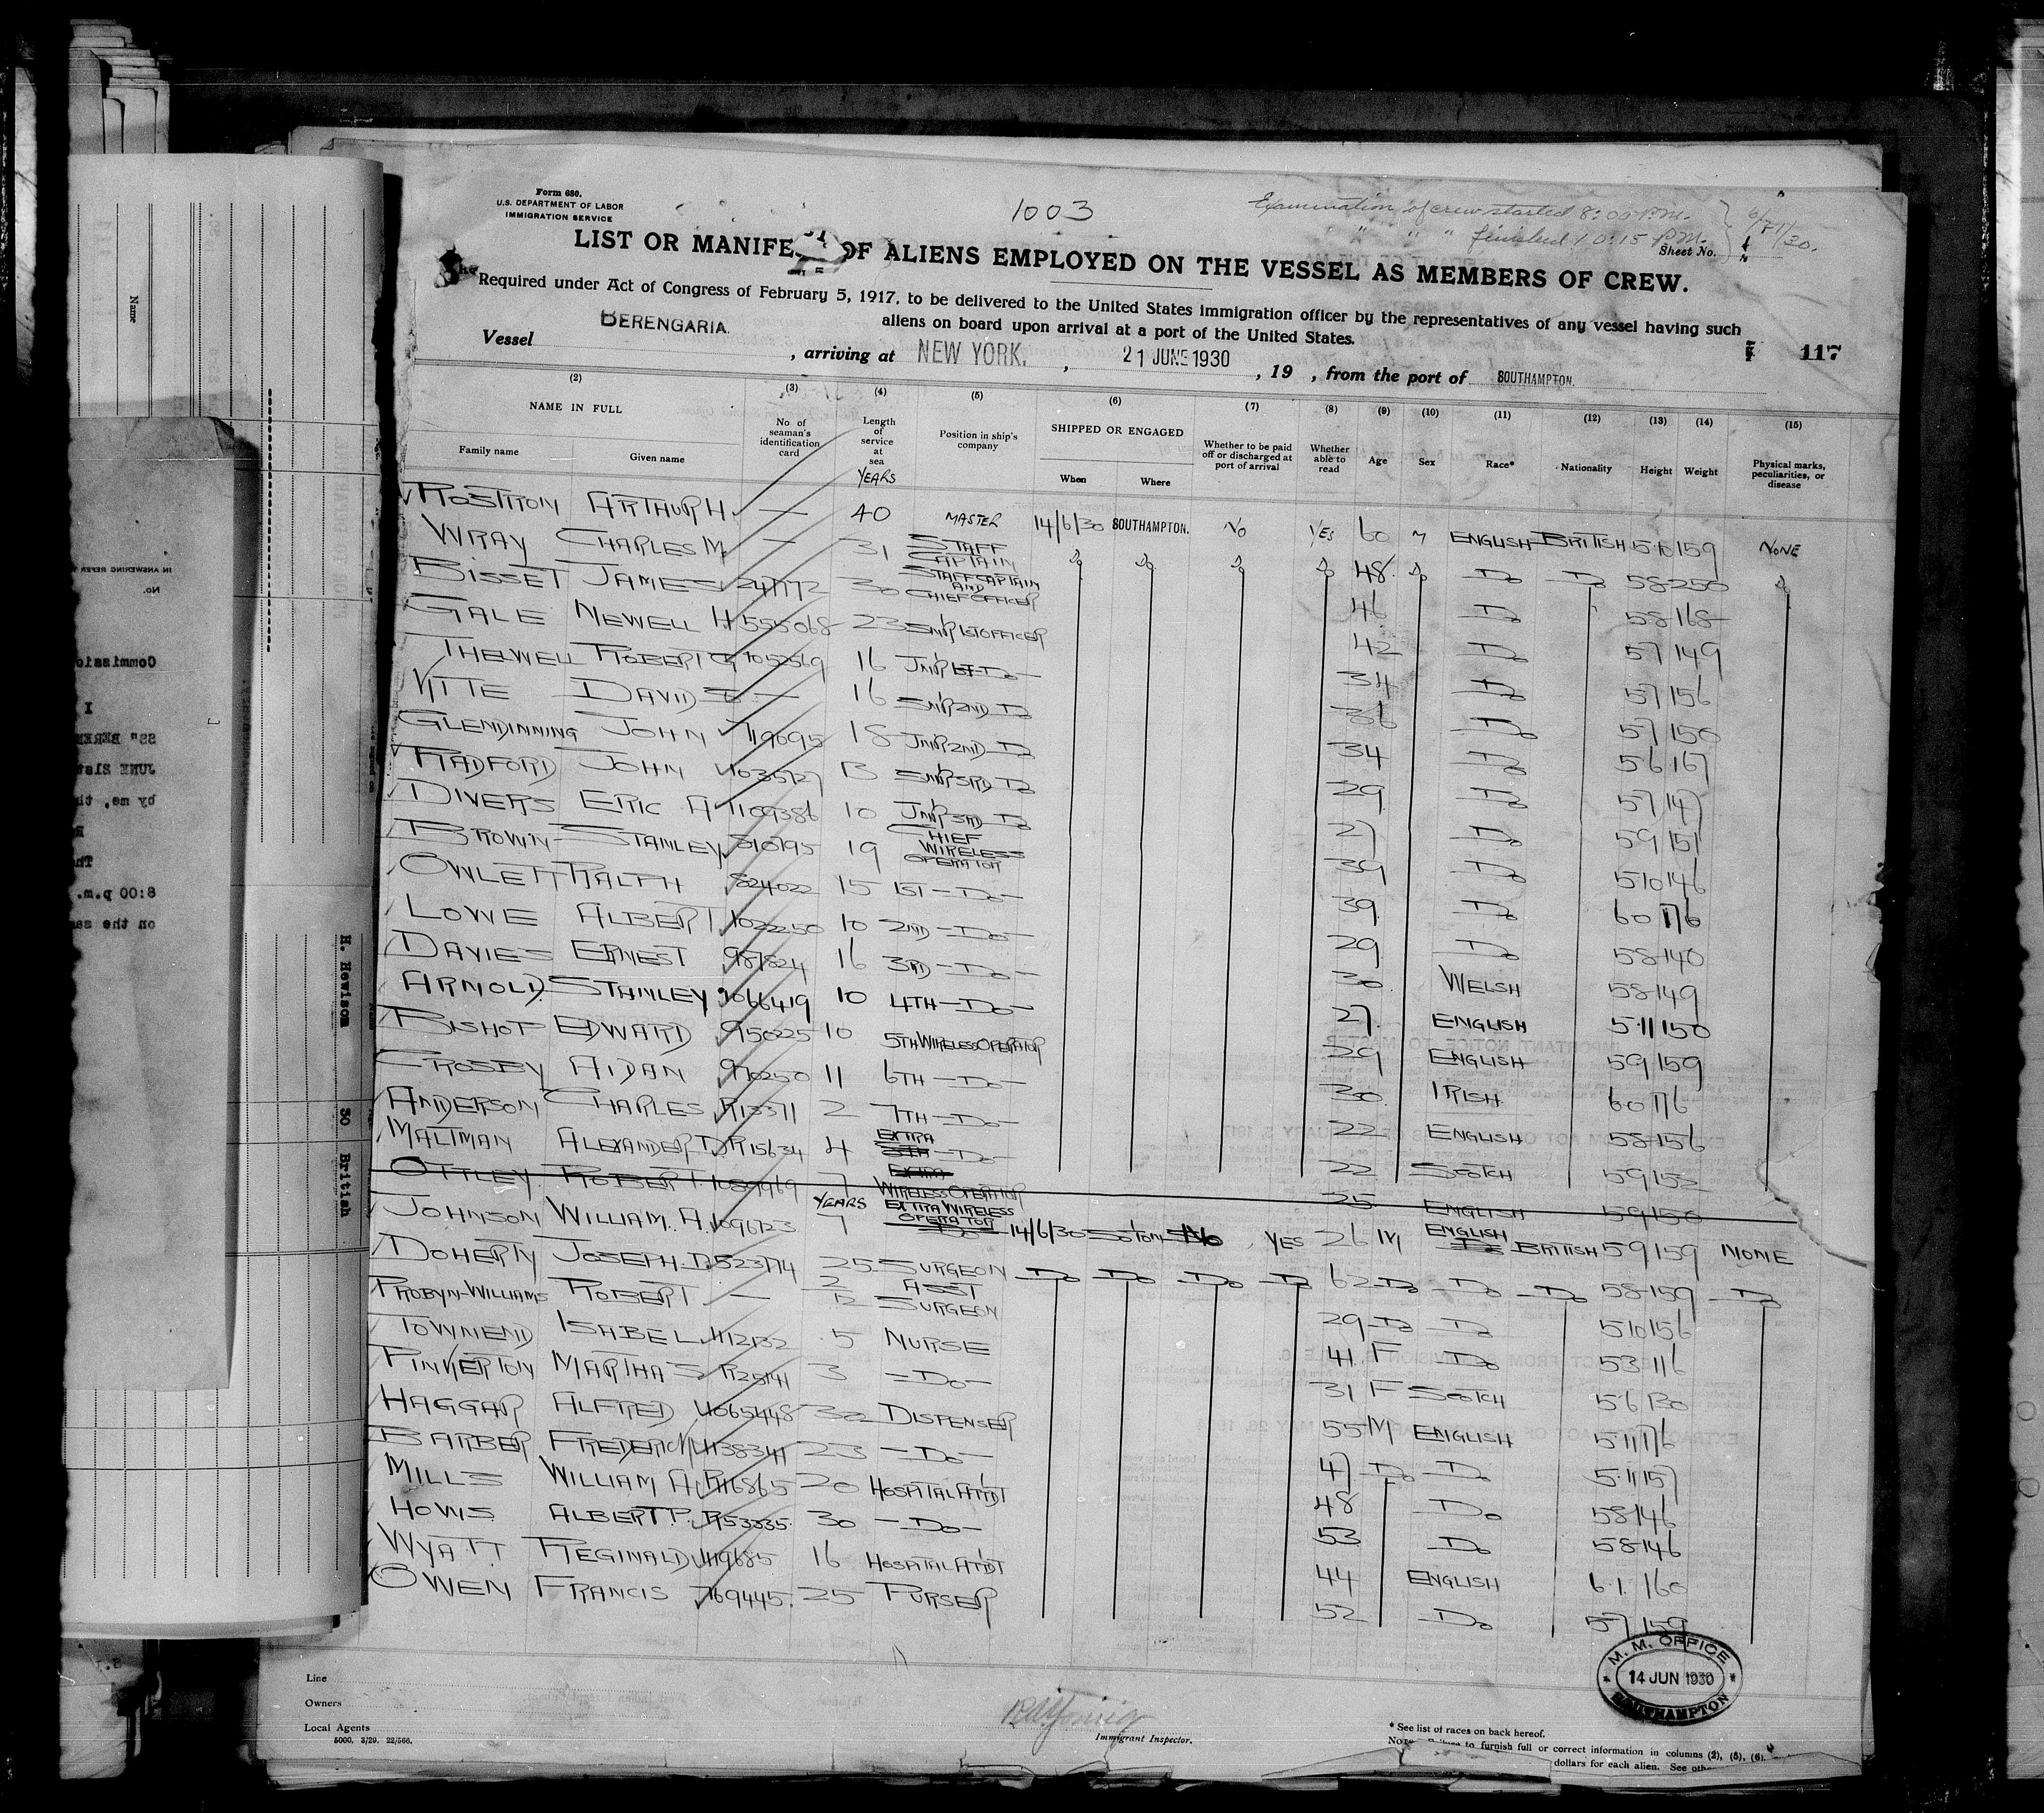 Form 680.
U.S. DEPARTMENT OF LABOR
IMMIGRATION SERVICE
1003
Examination of crew started 8:00 P.M.
" " " finished 10:15 P.M.
Sheet No.
LIST OR MANIFEST OF ALIENS EMPLOYED ON THE VESSEL AS MEMBERS OF CREW.
Required under Act of Congress of February 5, 1917, to be delivered to the United States immigration officer by the representatives of any vessel having such
aliens on board upon arrival at a port of the United States.
Vessel BERENGARIA. , arriving at NEW YORK. , 21 JUNE 1930 , 19 , from the port of SOUTHAMPTON.
117
(2) (3) (4) (5) (6) (7) (8) (9) (10) (11) (12) (13) (14) (15)
NAME IN FULL
Family name Given name
No of seaman's identification card
Length of service at sea
YEARS
Position in ship's company
SHIPPED OR ENGAGED
When Where
Whether to be paid off or discharged at port of arrival
Whether able to read
Age Sex Race* Nationality Height Weight
Physical marks, peculiarities, or disease
ROSTRON ARTHUR H. — 40 MASTER 14/6/30 SOUTHAMPTON. NO YES 60 M ENGLISH BRITISH 5·10 159 NONE
WRAY CHARLES M. — 31 STAFF CAPTAIN Do Do Do Do 48 Do Do Do 58 250 Do
BISSET JAMES 30 STAFF CAPTAIN AND CHIEF OFFICER 46 Do 58 168
GALE NEWELL H 555068 23 SNR 1ST OFFICER 42 Do 57 149
THELWELL ROBERT G 1052569 16 JNR 1ST Do 34 Do 57 156
VITTE DAVID — 16 SNR 2ND Do 36 Do 57 150
GLENDINNING JOHN 719695 18 JNR 2ND Do 34 Do 56 167
RADFORD JOHN 13 SNR 3RD Do 29 Do 57 147
DIVERS ERIC A 1109386 10 JNR 3RD Do 27 Do 59 151
BROWN STANLEY 19 CHIEF WIRELESS OPERATOR 39 Do 510 146
OWLETT RALPH 824022 15 1ST —Do— 39 Do 60 176
LOWE ALBERT 1022250 10 2ND —Do— 29 Do 58 140
DAVIES ERNEST 987824 16 3RD —Do— 30 WELSH 58 149
ARNOLD STANLEY 1066419 10 4TH —Do— 27 ENGLISH 5·11 150
BISHOP EDWARD 950225 10 5TH WIRELESS OPERATOR 29 ENGLISH 59 159
CROSBY AIDAN 970250 11 6TH —Do— 30 IRISH 60 176
ANDERSON CHARLES R13371 2 7TH —Do— 22 ENGLISH 58 156
MALTMAN ALEXANDER D R15634 4 EXTRA 8TH —Do— 22 SCOTCH 59 152
OTTLEY ROBERT 1089969 7 EXTRA WIRELESS OPERATOR 25 ENGLISH 59 150
JOHNSON WILLIAM. A. 1096723 YEARS 7 EXTRA WIRELESS OPERATOR Do 14/6/30 SO'TON NO YES 26 M ENGLISH Do BRITISH 59 159 NONE
DOHERTY JOSEPH 25 SURGEON Do Do Do Do 62 Do Do Do 58 159 Do
PROBYN-WILLIAMS ROBERT — ASST SURGEON 29 Do Do 510 156
TOWNEND ISABEL 5 NURSE 41 F Do 53 116
PINKERTON MARTHA S R25141 3 —Do— 31 F SCOTCH 5·6 130
HAGGAR ALFRED 1065448 32 DISPENSER 55 M ENGLISH 5·11 176
BARBER FREDERICK 1138341 23 —Do— 47 Do Do 5·11 157
MILLS WILLIAM A R116865 20 HOSPITAL ATT'DT 48 Do 58 146
HOWS ALBERT P. R53335 30 —Do— 53 Do 58 146
WYATT REGINALD 1119685 16 HOSPITAL ATT'DT 44 ENGLISH 6·1 160
OWEN FRANCIS 769445. 25 PURSER 52 Do 57 159
M. M. OFFICE
14 JUN 1930
SOUTHAMPTON
Line
Owners
Local Agents
5000, 3/29. 22/566.
Immigrant Inspector.
* See list of races on back hereof.
to furnish full or correct information in columns (2), (5), (6),
dollars for each alien. See
Name
H. Hewisom 30 British
IN ANSWERING REFER
No.
Commissio
I
SS" BEREN
JUNE 21st
by me, th
8:00 p.m.
on the sam